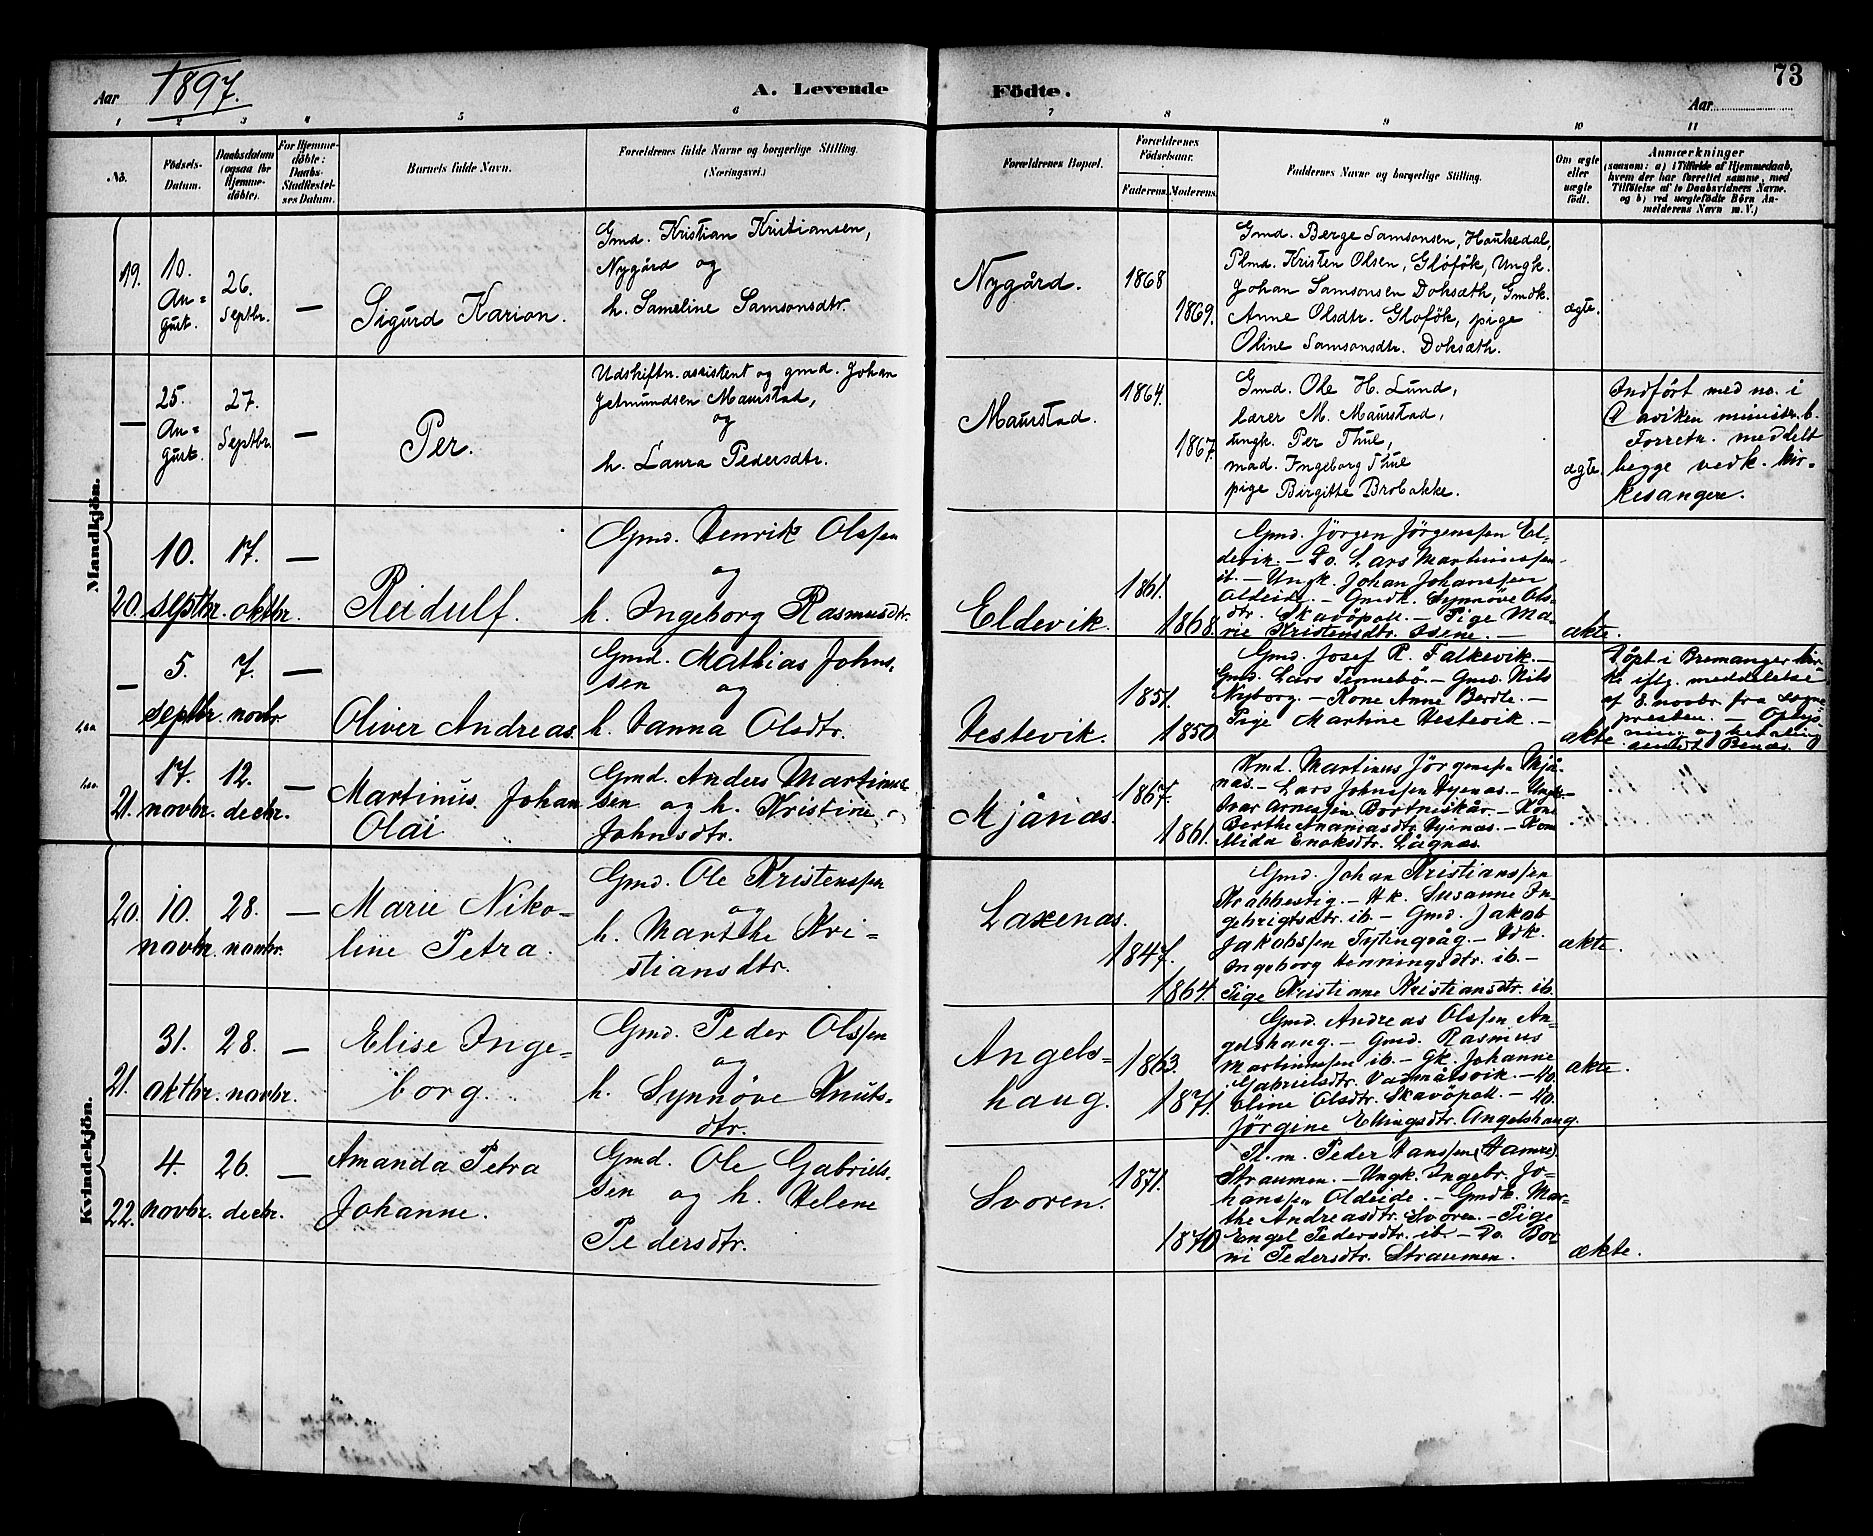 73
Aar 1897.
A. Levende Födte.
Aar
1 2 3 4 5 6 7 8 9 10 11
No.
Födsels-Datum.
Daabsdatum (ogsaa for Hjemmedöbte).
For Hjemmedöbte: Daabs-Stadfæstelses Datum.
Barnets fulde Navn.
Forældrenes fulde Navne og borgerlige Stilling.
(Næringsvei.)
Forældrenes Bopæl.
Forældrenes Födselsaar.
Faderens. Moderens.
Faddernes Navne og borgerlige Stilling.
Om ægte eller uægte födt.
Anmærkninger
(saasom: a) i Tilfælde af Hjemmedaab, hvem der har forrettet samme, med Tilföielse af to Daabsvidners Navne, og b) ved uægtefödte Börn Anmelderens Navn m. V.)
Mandkjön.
19.
10. August.
26. Septbr.
—
Sigurd Karion.
Gmd. Kristian Kristiansen,
Nygård og
h. Sameline Samsonsdtr.
Nygård.
1868
1869.
Gmd. Berge Samsonsen, Haukedal,
Plmd. Kristen Olsen, Glofök, Ungk.
Johan Samsonsen Doksæth, Gmdk.
Anne Olsdtr. Glofök, pige
Oline Samsonsdtr. Doksæth.
ægte.
—
25. August.
27. Septbr.
—
Per.
Udskiftn. assistent og gmd. Johan
Jetmundsen Maurstad,
og
h. Laura Pedersdtr.
Maurstad.
1864.
1867.
Gmd. Ole H. Lund,
lærer M. Maurstad,
ungk. Per Thue,
mad. Ingeborg Thue
pige Birgitte Brobakke.
ægte.
Indfört med no. i
Daviken ministr. b.
Forretn. meddelt
begge vedk. kir-
kesangere.
20.
10. septbr.
17. oktbr.
—
Reidulf.
Gmd. Henrik Olssen
og
h. Ingeborg Rasmusdtr.
Eldevik.
1861.
1868.
Gmd. Jörgen Jörgenssen El-
devik. — Do. Lars Martinussen
ib. — Ungk. Johan Johanssen
Oldeide. — Gmdk. Synnöve Ols-
dtr. Skavöpoll. — Pige Ma-
rie Kristensdtr. Isene. —
ækte.
—
5. septbr.
7. novbr.
—
Oliver Andreas.
Gmd. Mathias Johns-
sen og
h. Hanna Olsdtr.
Vestevik.
1851.
1850.
Gmd. Josef R. Falkevik. —
Gmd. Lars Tennebö. — Gmd. Nils
Nyborg. — Kone Anne Berdle. —
Pige Martine Vestevik. —
ækte.
Döpt i Bremanger kir-
ke iflg. meddelelse
af 8. novbr. fra sogne
presten. —
21.
17. novbr.
12. decbr.
—
Martinus Johan
Olai
Gmd. Anders Martinus-
sen og h. Kristine
Johnsdtr.
Mjånæs.
1867.
1861.
Kmd. Martinus Jörgenssen Mjå-
næs. — Lars Johnssen Hyenæs. — Ungk.
Ivar Arnessen Bortneskår. — Kone
Berthe Ananiasdtr. Hyenæs. — Kone
Alida Enoksdtr. Lågnæs.
Kvindekjön.
20.
10. novbr.
28. novbr.
—
Marie Niko-
line Petra.
Gmd. Ole Kristenssen
og
h. Marthe Kri-
stiansdtr.
Laxenæs.
1847.
1864.
Gmd. Johan Kristianssen
Krabbestig. — Hk. Susanne In-
gebrigtsdtr. ib. — Gmd. Jakob
Jakobssen Tytingvåg. —
Ingeborg Henningsdtr. ib. —
Pige Kristiane Kristiansdtr. ib.
ækte.
21.
31. oktbr.
28. novbr.
—
Elise Inge-
borg.
Gmd. Peder Olssen
og
h. Synnöve Knuts-
dtr.
Angels-
haug.
1863.
1871.
Gmd. Andreas Olssen An-
gelshaug. — Gmd. Rasmus
Martinussen ib. — Gk. Johanne
Gabrielsdtr. Vadmålsvik. — do.
Eline Olsdtr. Skavöpoll. — do.
Jörgine Ellingsdtr. Angelshaug.
ækte.
22.
4. novbr.
26. decbr.
—
Amanda Petra
Johanne.
Gmd. Ole Gabriels-
sen og h. Helene
Pedersdtr.
Svoren.
1871.
1870
Pl. m. Peder Hanssen (Hamre)
Straumen. — Ungk. Ingebr. Jo-
hanssen Oldeide. — Gmdk. Mar-
the Andreasdtr. Svoren. — Pige
Engel Pedersdtr. ib. — Do. Bor-
ni Pedersdtr. Straumen.
ækte.